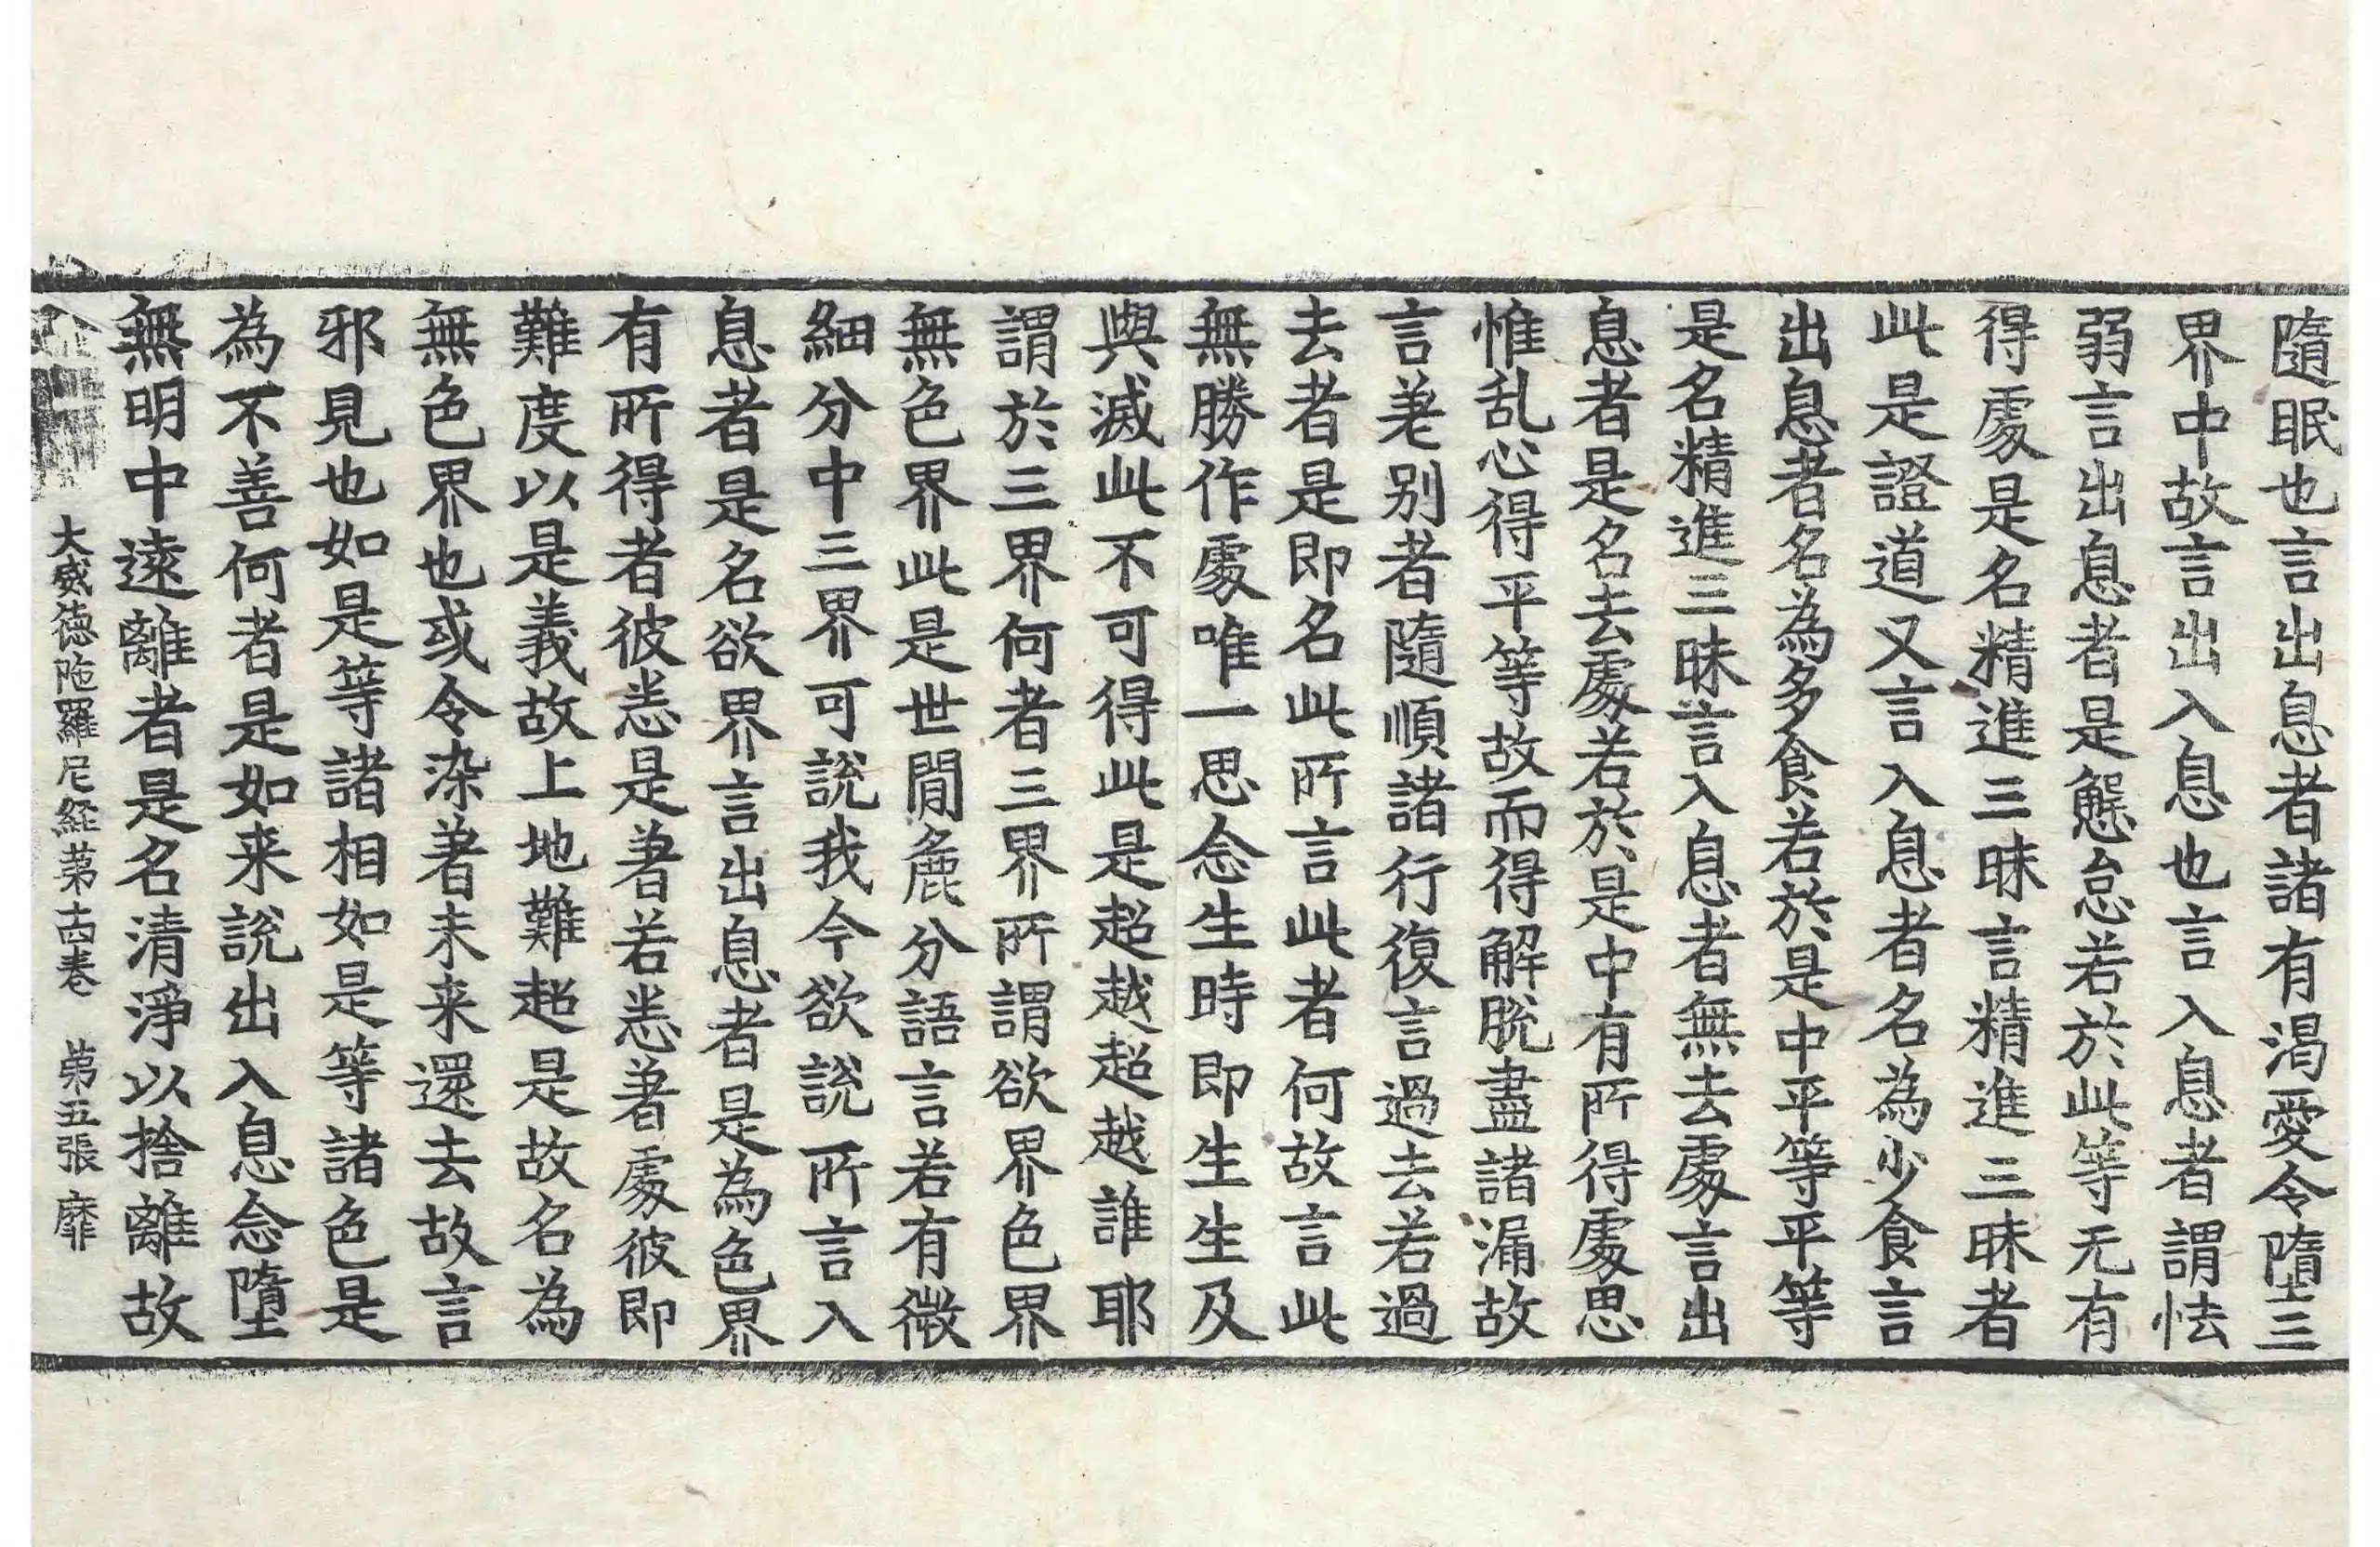 隨眠也言出息者諸有渴愛令墮三
界中故言出入息也言入息者謂怯
弱言出息者是懈怠若於此等无有
得處是名精進三昧言精進三昧者
此是證道又言入息者名為少食言
出息者名為多食若於是中平等平等
是名精進三昧言入息者無去處言出
息者是名去處若於是中有所得處思
惟乱心得平等故而得解脫盡諸漏故
言差别者隨順諸行復言過去若過
去者是即名此所言此者何故言此
無勝作處唯一思念生時即生生及
與滅此不可得此是超越超越誰耶
謂於三界何者三界所謂欲界色界
無色界此是世間麁分語言若有微
細分中三界可說我今欲說所言入
息者是名欲界言出息者是為色界
有所得者彼恙是著若恙著處彼即
難度以是義故上地難超是故名為
無色界也或令染著未来還去故言
邪見也如是等諸相如是等諸色是
為不善何者是如来說出入息念墮
無明中遠離者是名清淨以捨離故
大威德陁羅尼経苐十四卷　苐五張　靡